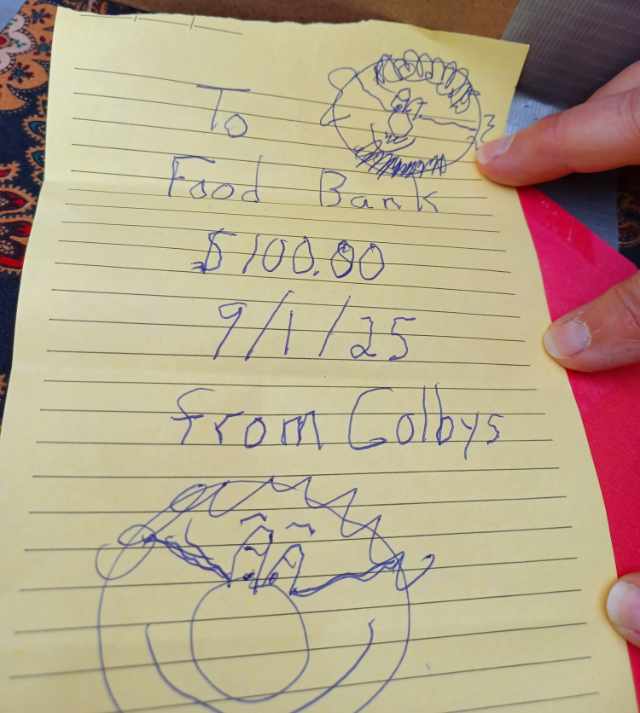 To
Food Bank
$100.00
9/1/25
from Colbys